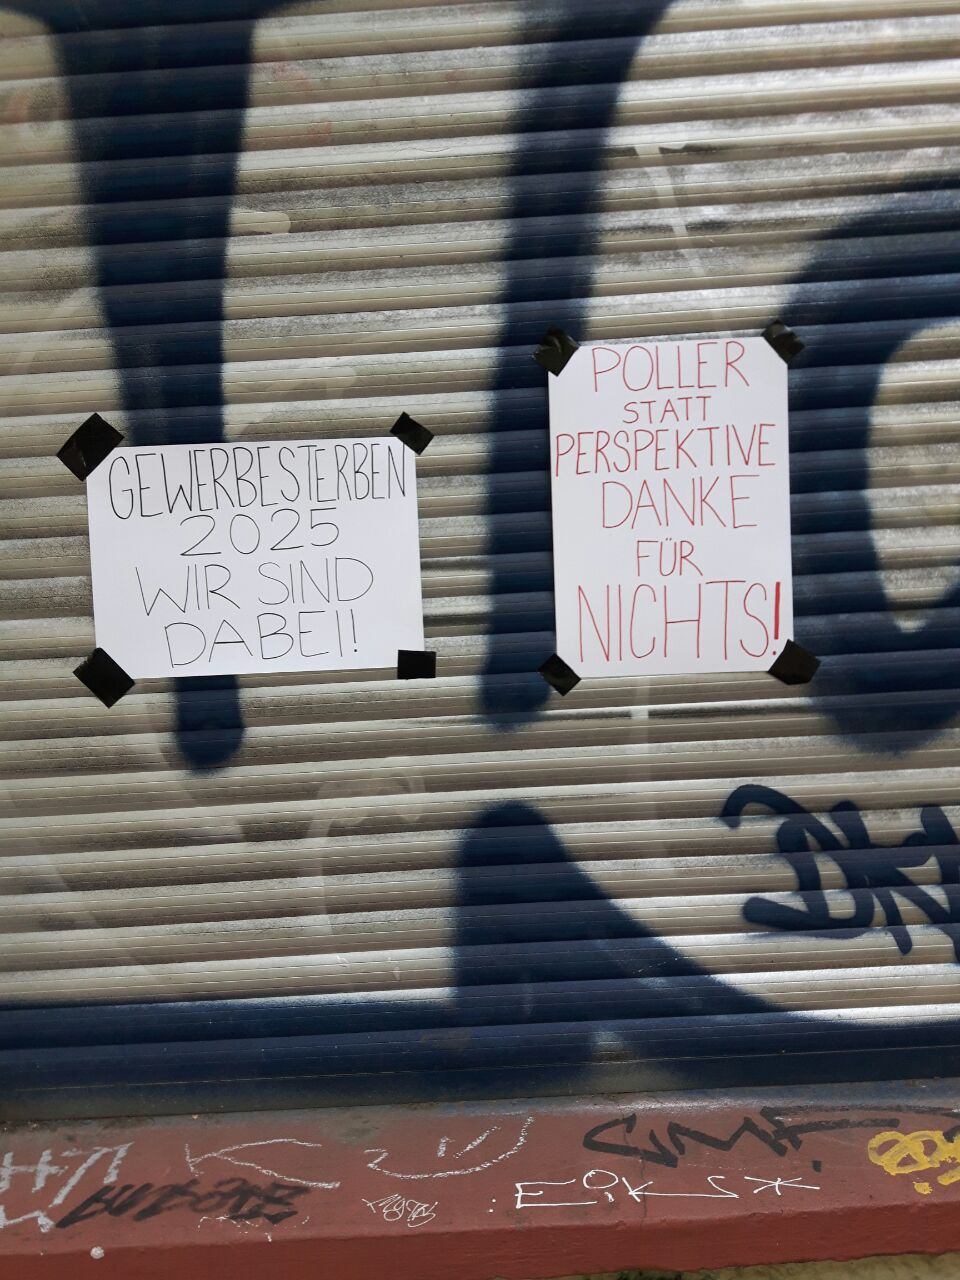 GEWERBESTERBEN
2025
WIR SIND
DABEI!
POLLER
STATT
PERSPEKTIVE
DANKE
FÜR
NICHTS!
EiKS